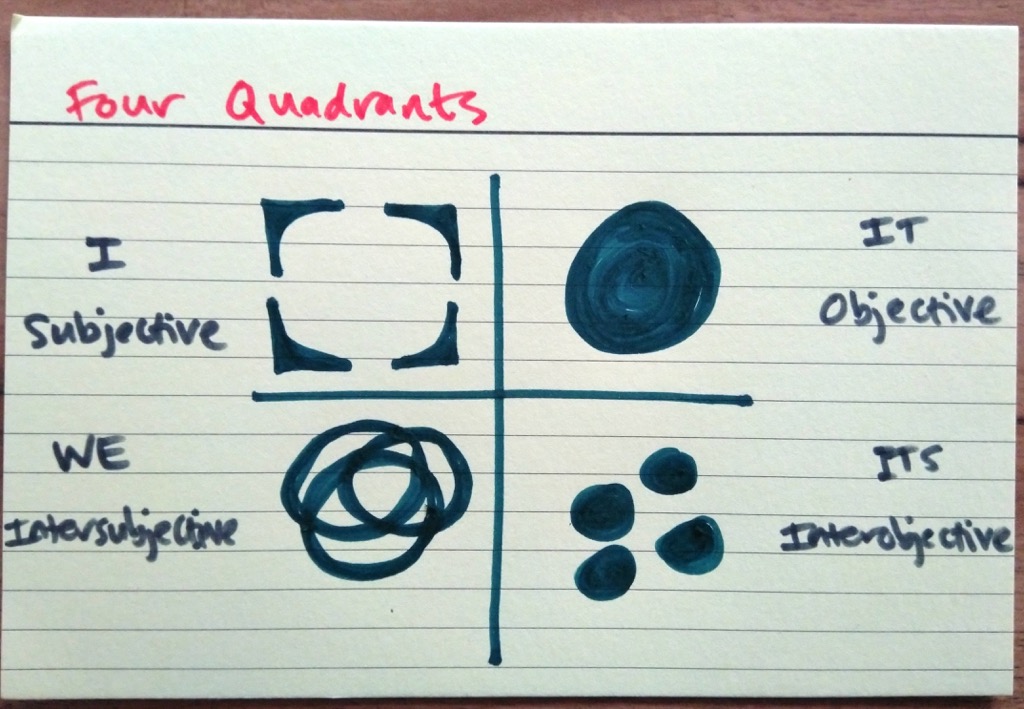 Four Quadrants
I
Subjective
IT
Objective
WE
Intersubjective
ITS
Interobjective